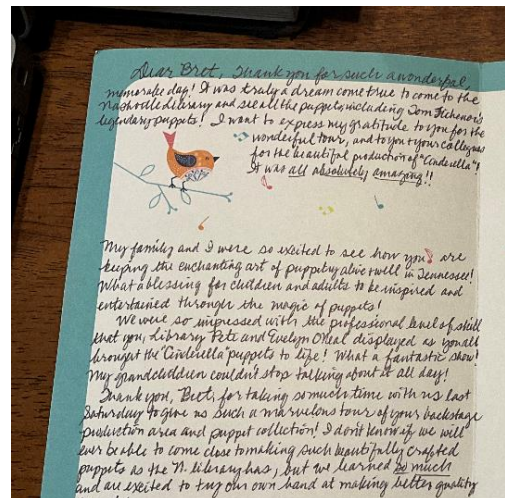 Dear Bret, Thank you for such a wonderful,
memorable day! It was truly a dream come true to come to the
Nashville library and see all the puppets, including Tom Tichenor's
legendary puppets! I want to express my gratitude to you for the
wonderful tour, and to you + your colleagues
for the beautiful production of "Cinderella"!
It was all absolutely amazing!!
My family and I were so excited to see how you are
keeping the enchanting art of puppetry alive + well in Tennessee!
What a blessing for children and adults to be inspired and
entertained through the magic of puppets!
We were so impressed with the professional level of skill
that you, Library Pete and Evelyn O'Neal displayed as you all
brought the "Cinderella" puppets to life! What a fantastic show!
My grandchildren couldn't stop talking about it all day!
Thank you, Bret, for taking so much time with us last
Saturday to give us such a marvelous tour of your backstage
production area and puppet collection! I don't know if we will
ever be able to come close to making such beautifully crafted
puppets as the N. library has, but we learned so much
and are excited to try our own hand at making better quality